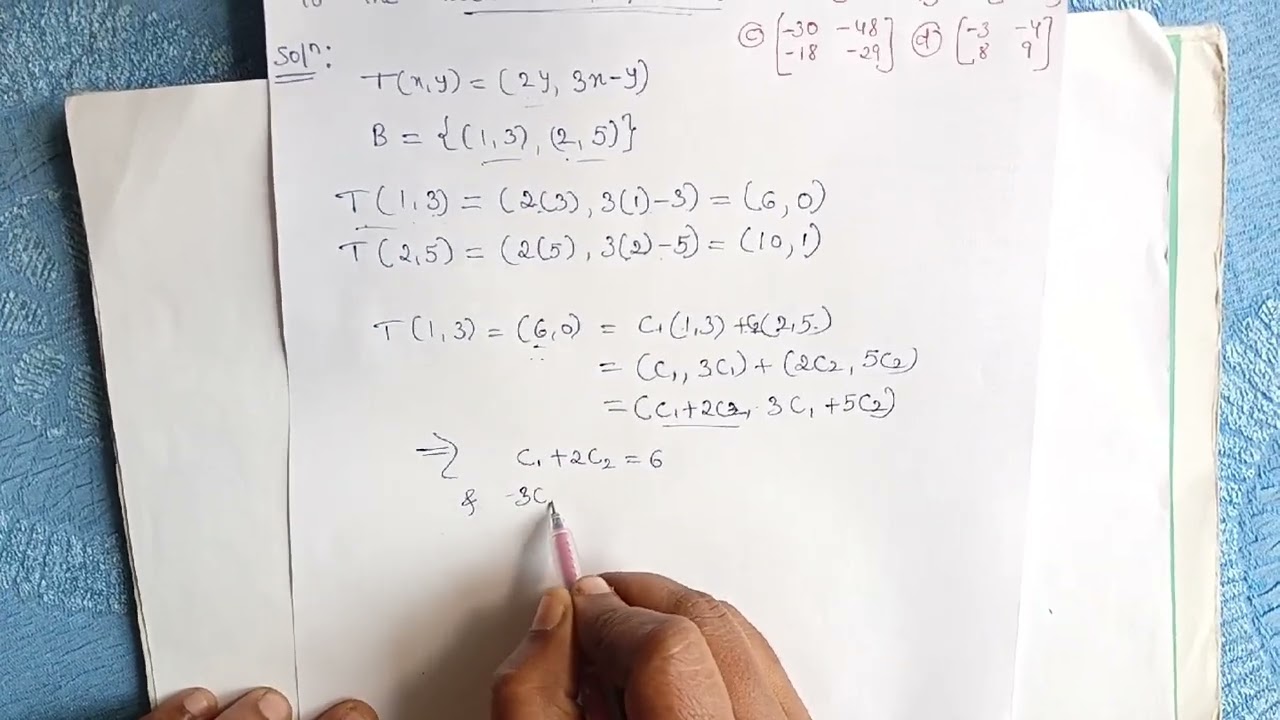 to the
Ⓒ [-30 -48] ⓓ [-3 -4]
[-18 -29] [8 9]
Solⁿ:
T(x,y) = (2y, 3x-y)
B = {(1,3), (2,5)}
T(1,3) = (2(3), 3(1)-3) = (6,0)
T(2,5) = (2(5), 3(2)-5) = (10,1)
T(1,3) = (6,0) = C₁(1,3) + C₂(2,5)
= (C₁, 3C₁) + (2C₂, 5C₂)
= (C₁+2C₂, 3C₁+5C₂)
⇒ C₁+2C₂ = 6
& 3C₁